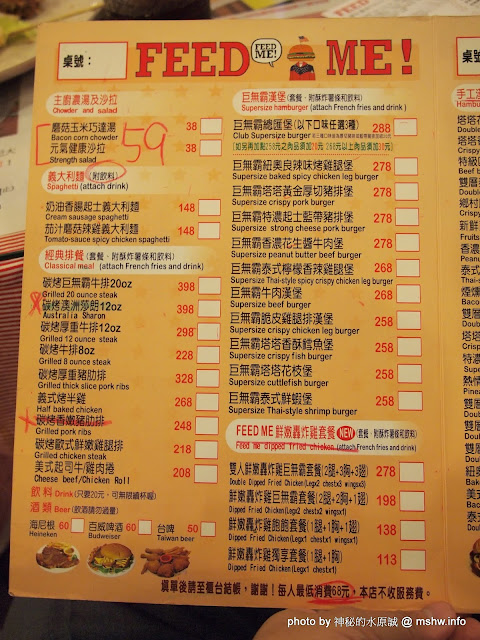 桌號：
FEED ME!
FEED ME!
主廚濃湯及沙拉
Chowder and salad
蘑菇玉米巧達湯 38
Bacon corn chowder
元氣健康沙拉 38
Strength salad
59
義大利麵（附飲料）
Spaghetti (attach drink)
奶油香腸起士義大利麵 148
Cream sausage spaghetti
茄汁蘑菇辣雞義大利麵 148
Tomato-sauce spicy chicken spaghetti
經典排餐（套餐、附酥炸薯條和飲料）
Classical meal (attach French fries and drink)
碳烤巨無霸牛排20oz 398
Grilled 20 ounce steak
碳烤澳洲莎朗12oz 398
Australia Sharon
碳烤厚重牛排12oz 298
Grilled 12 ounce steak
碳烤牛排8oz 228
Grilled 8 ounce steak
碳烤厚重豬肋排 328
Grilled thick slice pork ribs
義式烤半雞 268
Half baked chicken
碳烤香嫩豬肋排 248
Grilled pork ribs
碳烤歐式鮮嫩雞腿排 218
Grilled chicken steak
美式起司牛/雞肉捲 208
Cheese beef/Chicken Roll
飲料 Drink（只要20元，可無限續杯喔）
酒類 Beer（飲酒請勿過量）
海尼根 60 百威啤酒 60 台啤 50
Heineken Budweiser Taiwan beer
巨無霸漢堡（套餐、附酥炸薯條和飲料）
Supersize hamburger (attach French fries and drink)
巨無霸總匯堡（以下口味任選3種） 288
Club Supersize burger
巨無霸紐奧良辣味烤雞腿堡 278
Supersize baked spicy chicken leg burger
巨無霸塔塔黃金厚切豬排堡 278
Supersize crispy pork burger
巨無霸特濃起士藍帶豬排堡 278
Supersize strong cheese pork burger
巨無霸香濃花生醬牛肉堡 278
Supersize peanut butter beef burger
巨無霸泰式檸檬香辣雞腿堡 268
Supersize Thai-style spicy crispy chicken leg burger
巨無霸牛肉漢堡 268
Supersize beef burger
巨無霸脆皮雞腿排漢堡 258
Supersize crispy chicken leg burger
巨無霸塔塔香酥鱈魚堡 258
Supersize crispy fish burger
巨無霸塔塔花枝堡 258
Supersize cuttlefish burger
巨無霸泰式鮮蝦堡 258
Supersize Thai-style shrimp burger
FEED ME 鮮嫩轟炸雞套餐 NEW（套餐、附酥炸薯條和飲料）
Feed me dipped fried chicken (attach French fries and drink)
雙人鮮嫩轟炸雞巨無霸套餐(2腿+2胸+3翅) 278
Double Dipped Fried Chicken(Legx2 chestx2 wingsx3)
鮮嫩轟炸雞巨無霸套餐(1腿+2胸+1翅) 198
Dipped Fried Chicken(Legx1 chestx2 wingsx1)
鮮嫩轟炸雞飽飽套餐(1腿+1胸+1翅) 138
Dipped Fried Chicken(Legx1 chestx1 wingx1)
鮮嫩轟炸雞獨享套餐(1腿+1胸) 113
Dipped Fried Chicken(Legx1 chestx1)
填單後請至櫃台結帳，謝謝！每人最低消費68元，本店不收服務費。
photo by 神秘的水原誠 @ mshw.info